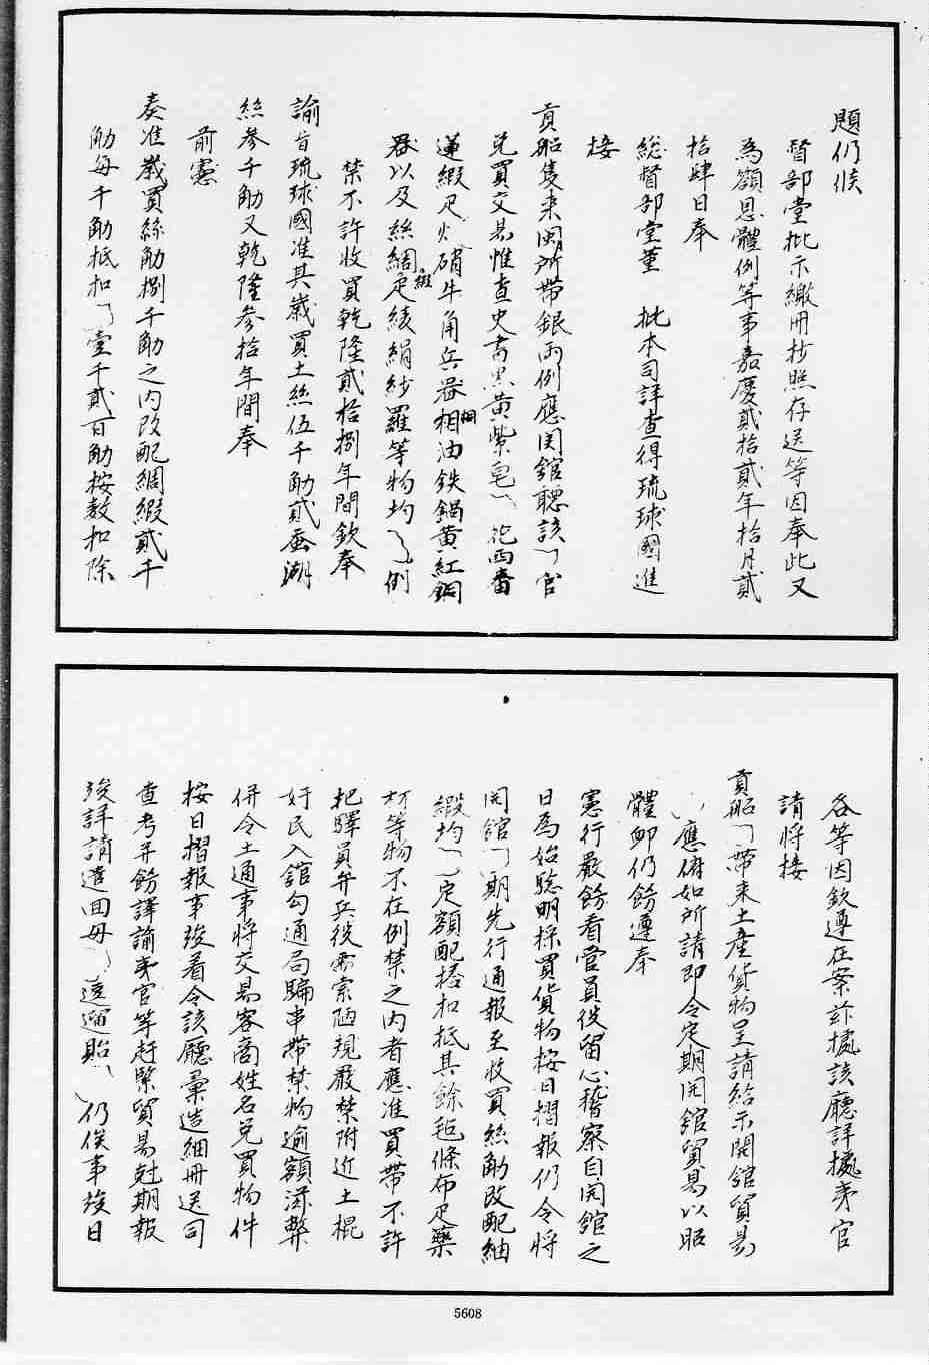 題仍候
督部堂批示繳冊抄照存送等因奉此又
為籲恩體例等事嘉慶貳拾貳年拾月貳
拾肆日奉
總督部堂董　批本司詳查得琉球國進
接
貢船隻来閩所帶銀兩例應開舘聽該官
兑買交易惟查史書黑黄紫皂西番
蓮緞疋火硝牛角兵器桐油鉄鍋黄紅銅
器以及絲綢疋綾絹紗羅等物均例
禁不許收買乾隆貳拾捌年間欽奉
諭旨琉球國准其歲買土絲伍千觔貳蚕湖
絲叁千觔又乾隆叁拾年間奉
前憲
奏准歲買絲觔捌千觔之内改配綢緞貳千
觔每千觔抵扣壹千貳百觔按数扣除
各等因欽遵在案玆據該廳詳據夷官
請将接
貢船帶来土產貨物呈請給示開舘貿易
應俯如所請即令定期開舘貿易以昭
體卹仍飭遵奉
憲行嚴飭看管員役留心稽察自開舘之
日為始驗明採買貨物按日摺報仍令将
開舘期先行通報至收買絲觔改配紬
緞均定額配搭扣抵其餘毡條布疋藥
材等物不在例禁之内者應准買帶不許
把驛員弁兵役需索陋規嚴禁附近土棍
奸民入舘勾通局騙串帶禁物逾額滋弊
併令土通事将交易客商姓名兑買物件
按日摺報事竣着令該廳彙造細冊送司
查考并飭譯諭夷官等赶緊貿易尅期報
竣詳請遣回毋逗遛貽仍俟事竣日
5608